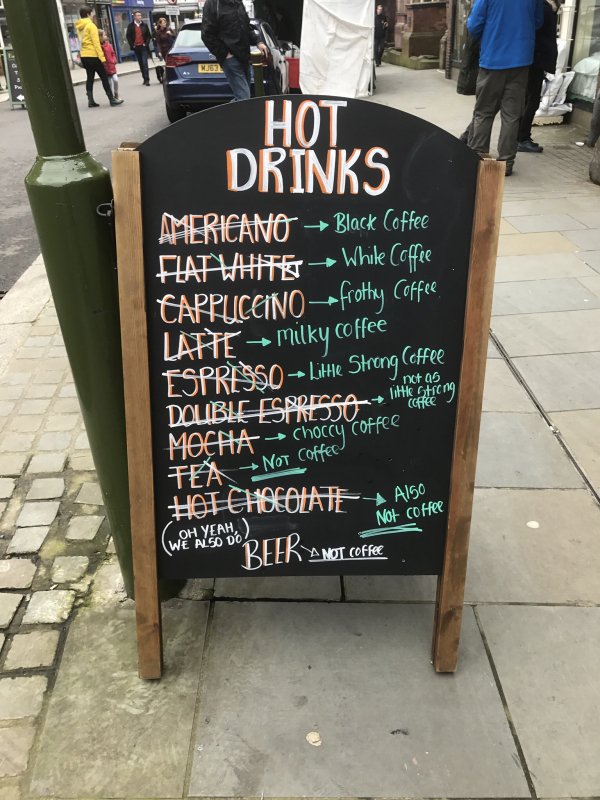 HOT
DRINKS
AMERICANO → Black Coffee
FLAT WHITE → While Coffee
CAPPUCCINO → frothy Coffee
LATTE → milky coffee
ESPRESSO → Little Strong Coffee
DOUBLE ESPRESSO → not as little strong coffee
MOCHA → choccy coffee
TEA → NOT coffee
HOT CHOCOLATE → Also NOT coffee
(OH YEAH, WE ALSO DO) BEER → NOT coffee